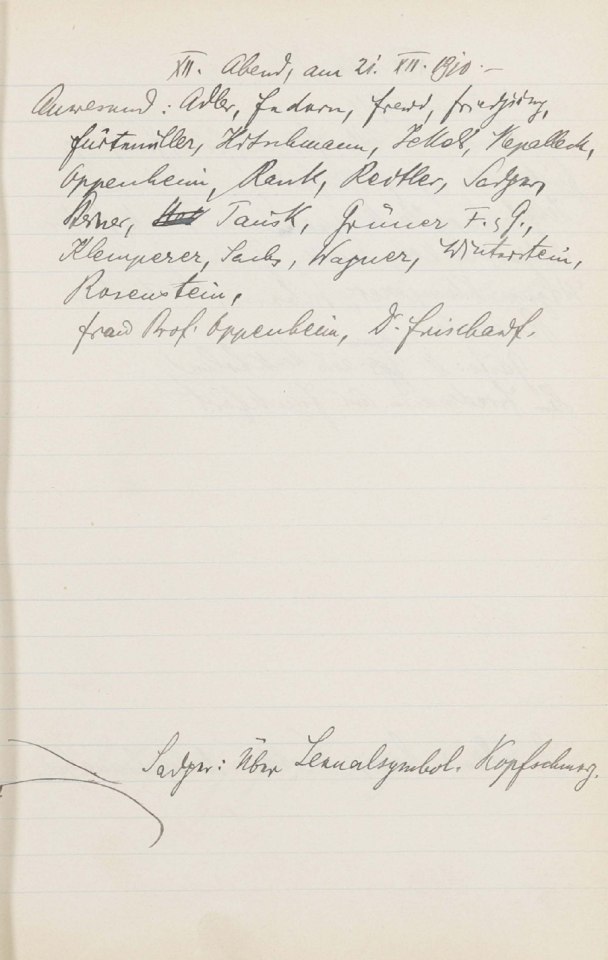 XII. Abend, am 21. XII. 1910.–
Anwesend: Adler, Federn, Freud, Friedjung,
Furtmüller, Hitschmann, Jekels, Klemperer,
Oppenheim, Rank, Reitler, Sadger,
Steiner, Tausk, Grüner F. & G.,
Klemperer, Sachs, Wagner, Winterstein,
Rosenstein,
Frau Prof. Oppenheim, Dr. Frischauf.
Sadger: Über Sexualsymbol. Kopfschmerz.